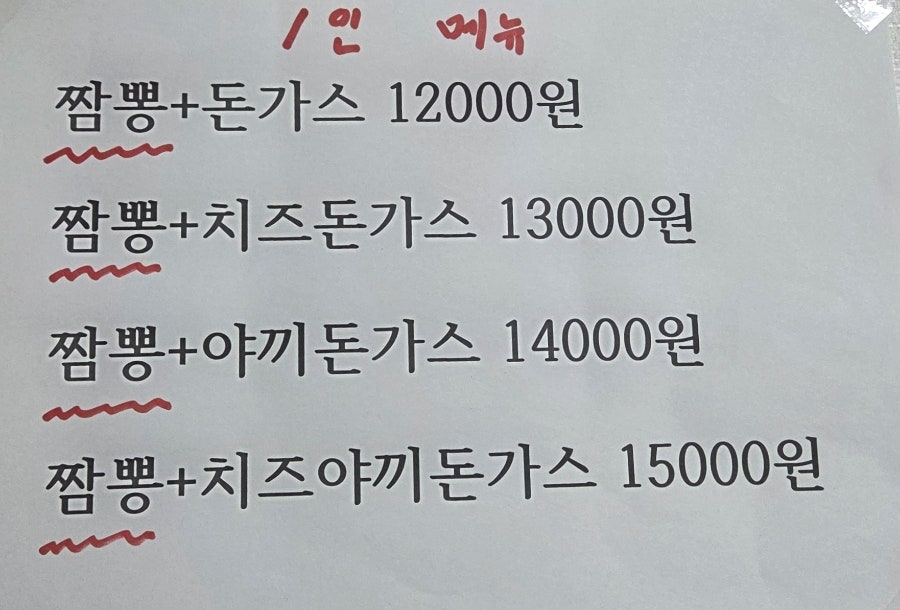 1인 메뉴
짬뽕+돈가스 12000원
짬뽕+치즈돈가스 13000원
짬뽕+야끼돈가스 14000원
짬뽕+치즈야끼돈가스 15000원